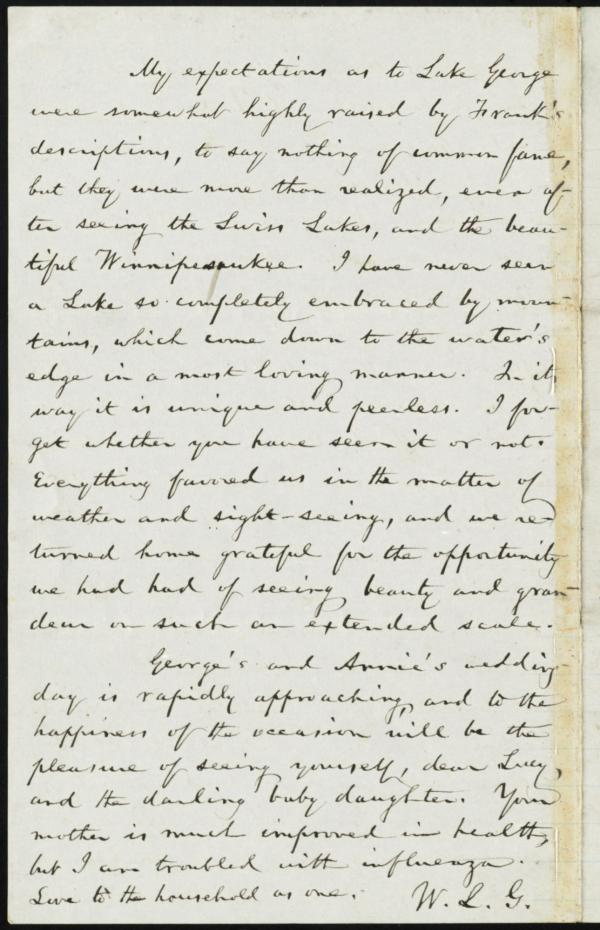 My expectations as to Lake George
were somewhat highly raised by Frank's
descriptions, to say nothing of common fame,
but they were more than realized, even af-
ter seeing the Swiss Lakes, and the beau-
tiful Winnipesaukee. I have never seen
a Lake so completely embraced by moun-
tains, which come down to the water's
edge in a most loving manner. In its
way it is unique and peerless. I for-
get whether you have seen it or not.
Everything favored us in the matter of
weather and sight-seeing, and we re-
turned home grateful for the opportunity
we had had of seeing beauty and gran-
deur on such an extended scale.
George's and Annie's wedding
day is rapidly approaching, and to the
happiness of the occasion will be the
pleasure of seeing yourself, dear Lucy,
and the darling baby daughter. Your
mother is much improved in health,
but I am troubled with influenza.
Love to the household as one.
W. L. G.